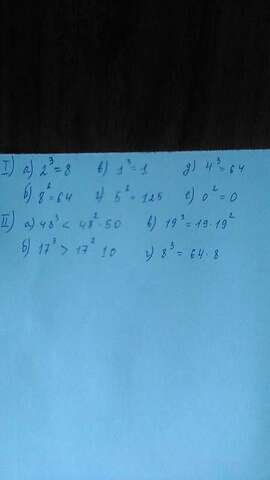 I) а) 2³=8 в) 1³=1 д) 4³=64
б) 8²=64 г) 5²=125 е) 0²=0
II) а) 48³ < 48²·50 в) 19³=19·19²
б) 17³ > 17² 10 г) 8³=64·8